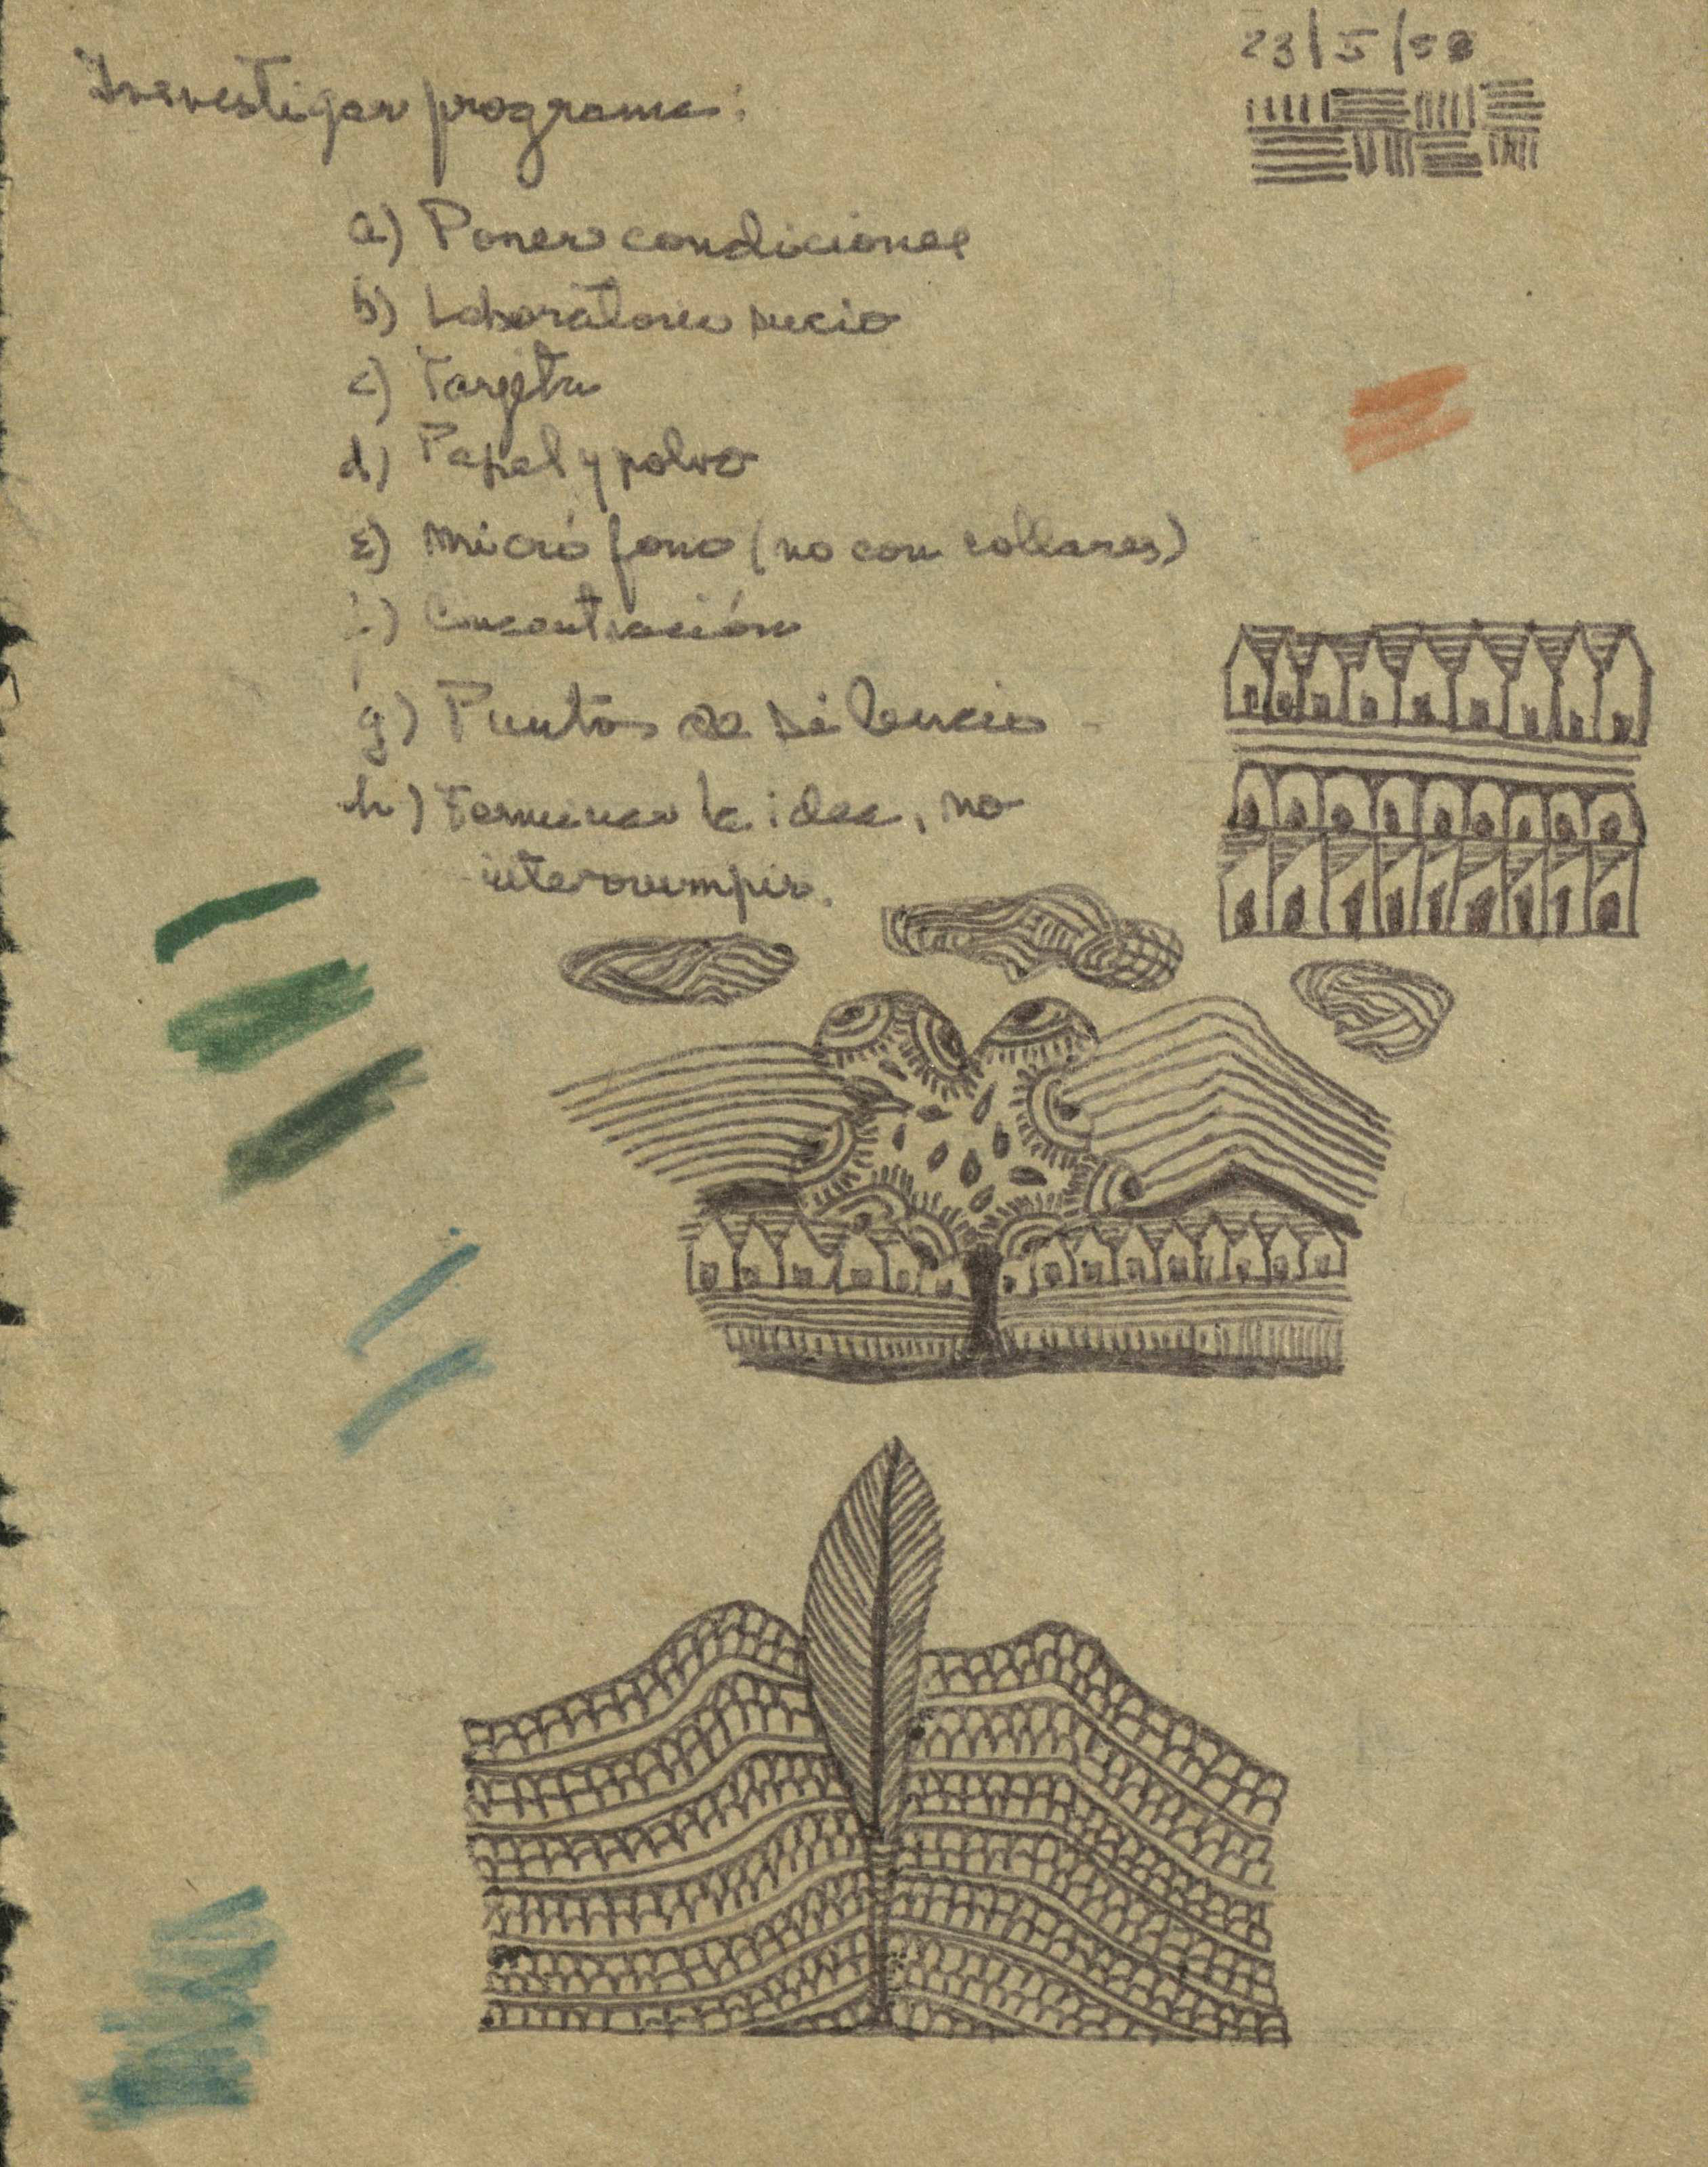 23/5/58
Investigar programa:
a) Poner condiciones
b) Laboratorio sucio
c) Targeta
d) Papel y polvo
e) micrófono (no con collares)
f) Concentración
g) Puntos de silencio -
h) Terminar la idea, no
interrumpir.